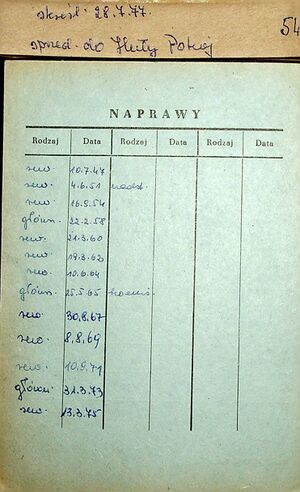 skreśl. 28.7.77.
54
sprzed. do Huty Pokój
NAPRAWY
Rodzaj Data Rodzaj Data Rodzaj Data
rew. 10.7.47
rew. 4.6.51 nadzw.
rew. 16.9.54
główn. 22.2.58
rew. 21.3.60
rew. 19.3.63
rew. 10.6.64
główn. 25.5.65
rew 30.8.67
rew. 8.8.69
rew. 10.9.71
główn. 31.3.73
rew. 13.3.75